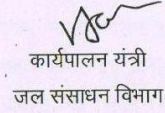 कार्यपालन यंत्री
जल संसाधन विभाग